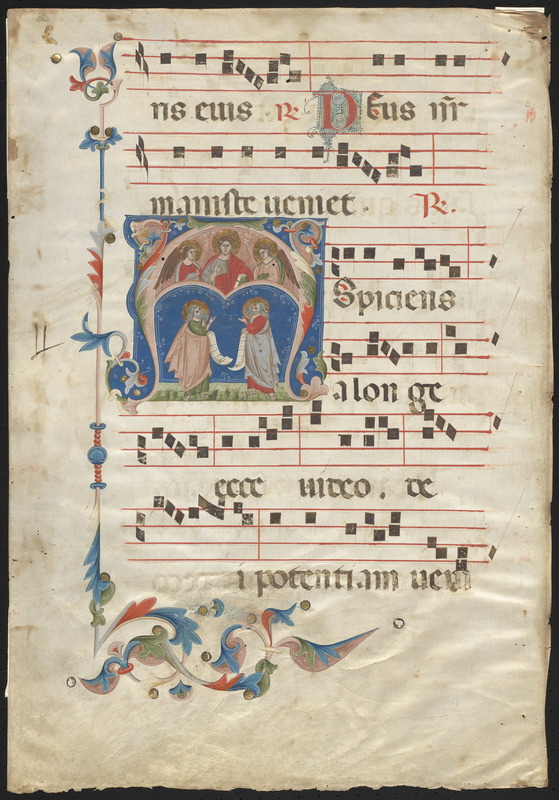 ris eius . R. Deus nr̄
manifeste veniet R.
Aspiciens
a longe
ecce video . de
i potentiam veni